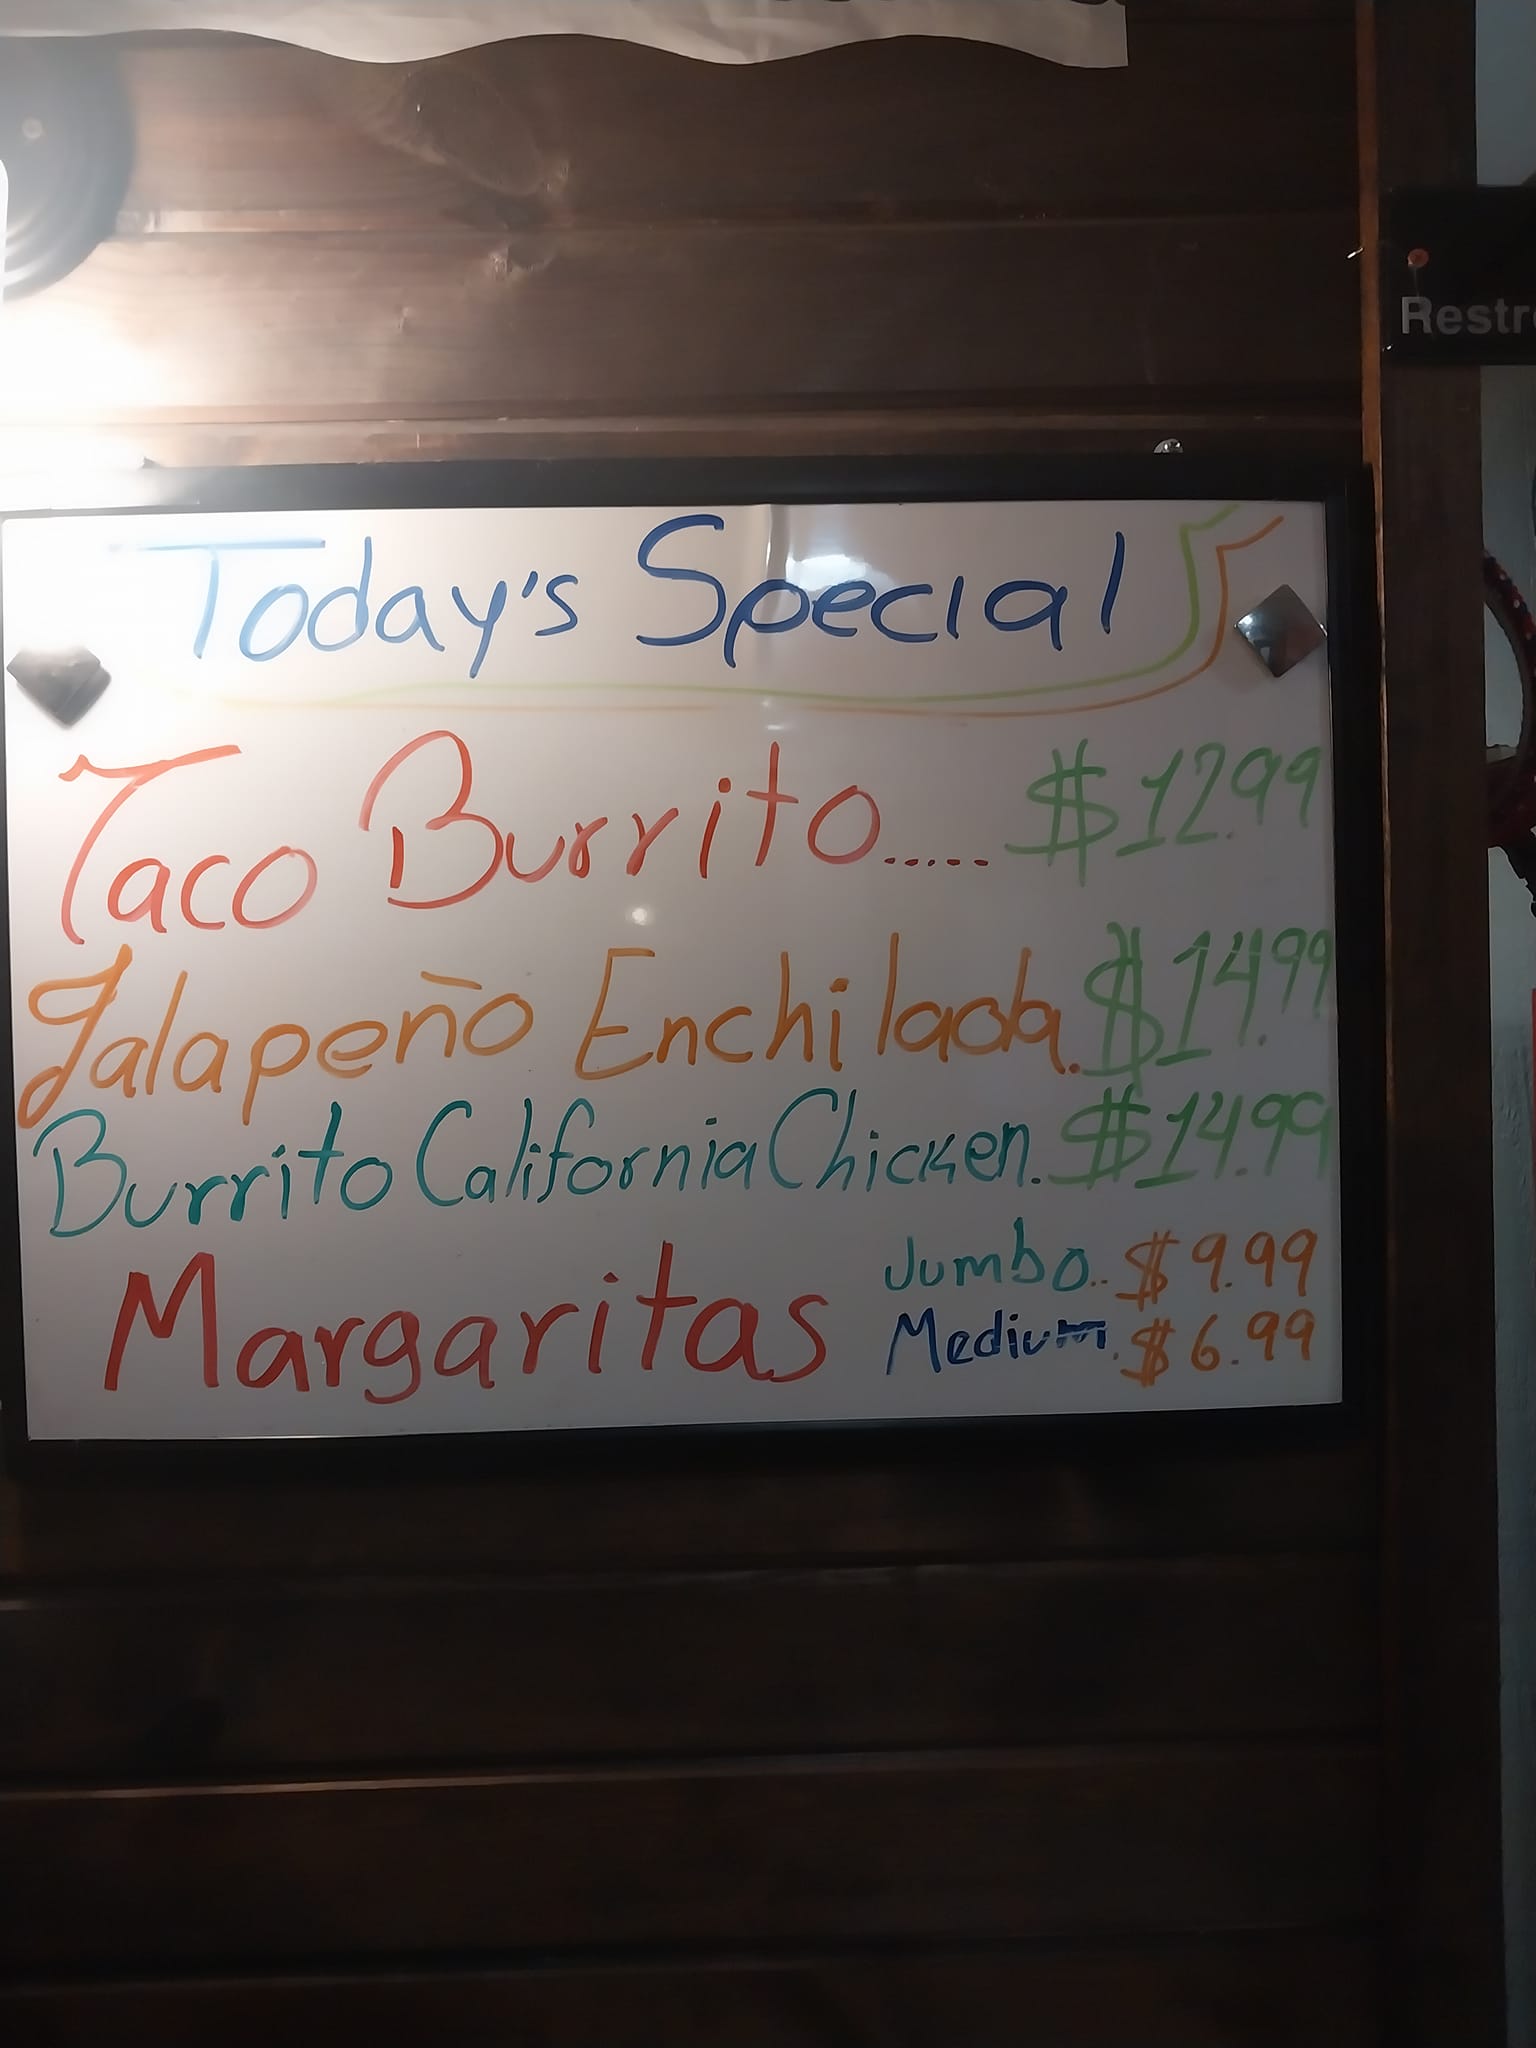 Restr
Today's Special
Taco Burrito..... $12.99
Jalapeño Enchilada. $14.99
Burrito California Chicken. $14.99
Margaritas Jumbo.. $9.99
Medium. $6.99